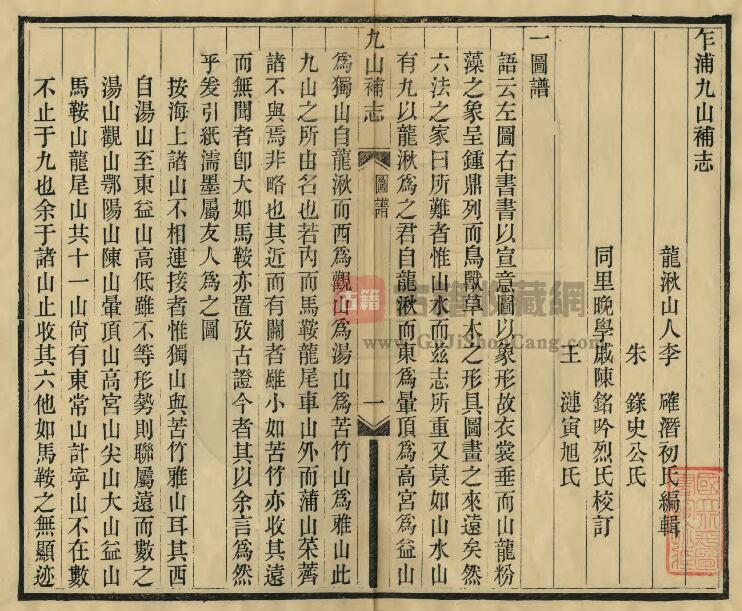 乍浦九山補志
龍湫山人李確潛初氏編輯
朱錄史公氏
同里晚學戚陳銘吟烈氏校訂
王漣寅旭氏
一圖譜
語云左圖右書書以宣意圖以象形故衣裳垂而山龍粉
藻之象呈鍾鼎列而鳥獸草木之形具圖畫之來遠矣然
六法之家曰所難者惟山水而茲志所重又莫如山水山
有九以龍湫爲之君自龍湫而東爲暈頂爲高宮爲益山
九山補志
圖譜
一
爲獨山自龍湫而西爲觀山爲湯山爲苦竹山爲雅山此
九山之所由名也若內而馬鞍龍尾車山外而蒲山菜薺
諸不與焉非略也其近而有關者雖小如苦竹亦收其遠
而無聞者卽大如馬鞍亦置攷古證今者其以余言爲然
乎爰引紙濡墨屬友人爲之圖
按海上諸山不相連接者惟獨山與苦竹雅山耳其西
自湯山至東益山高低雖不等形勢則聯屬遠而數之
湯山觀山鄂陽山陳山暈頂山高宮山尖山大山益山
馬鞍山龍尾山共十一山尙有東常山計寧山不在數
不止于九也余于諸山止收其六他如馬鞍之無顯迹
古籍
www.GuJiShouCang.com